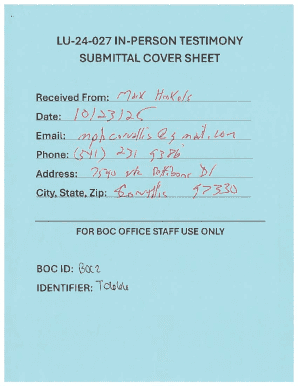 LU-24-027 IN-PERSON TESTIMONY
SUBMITTAL COVER SHEET
Received From: Mark
Date: 10/23/25
Email: mphcorvallis@gmail.com
Phone: (541) 231 5386
Address: 7540 Dr
City, State, Zip: Corvallis 97330
FOR BOC OFFICE STAFF USE ONLY
BOC ID: BOC2
IDENTIFIER: